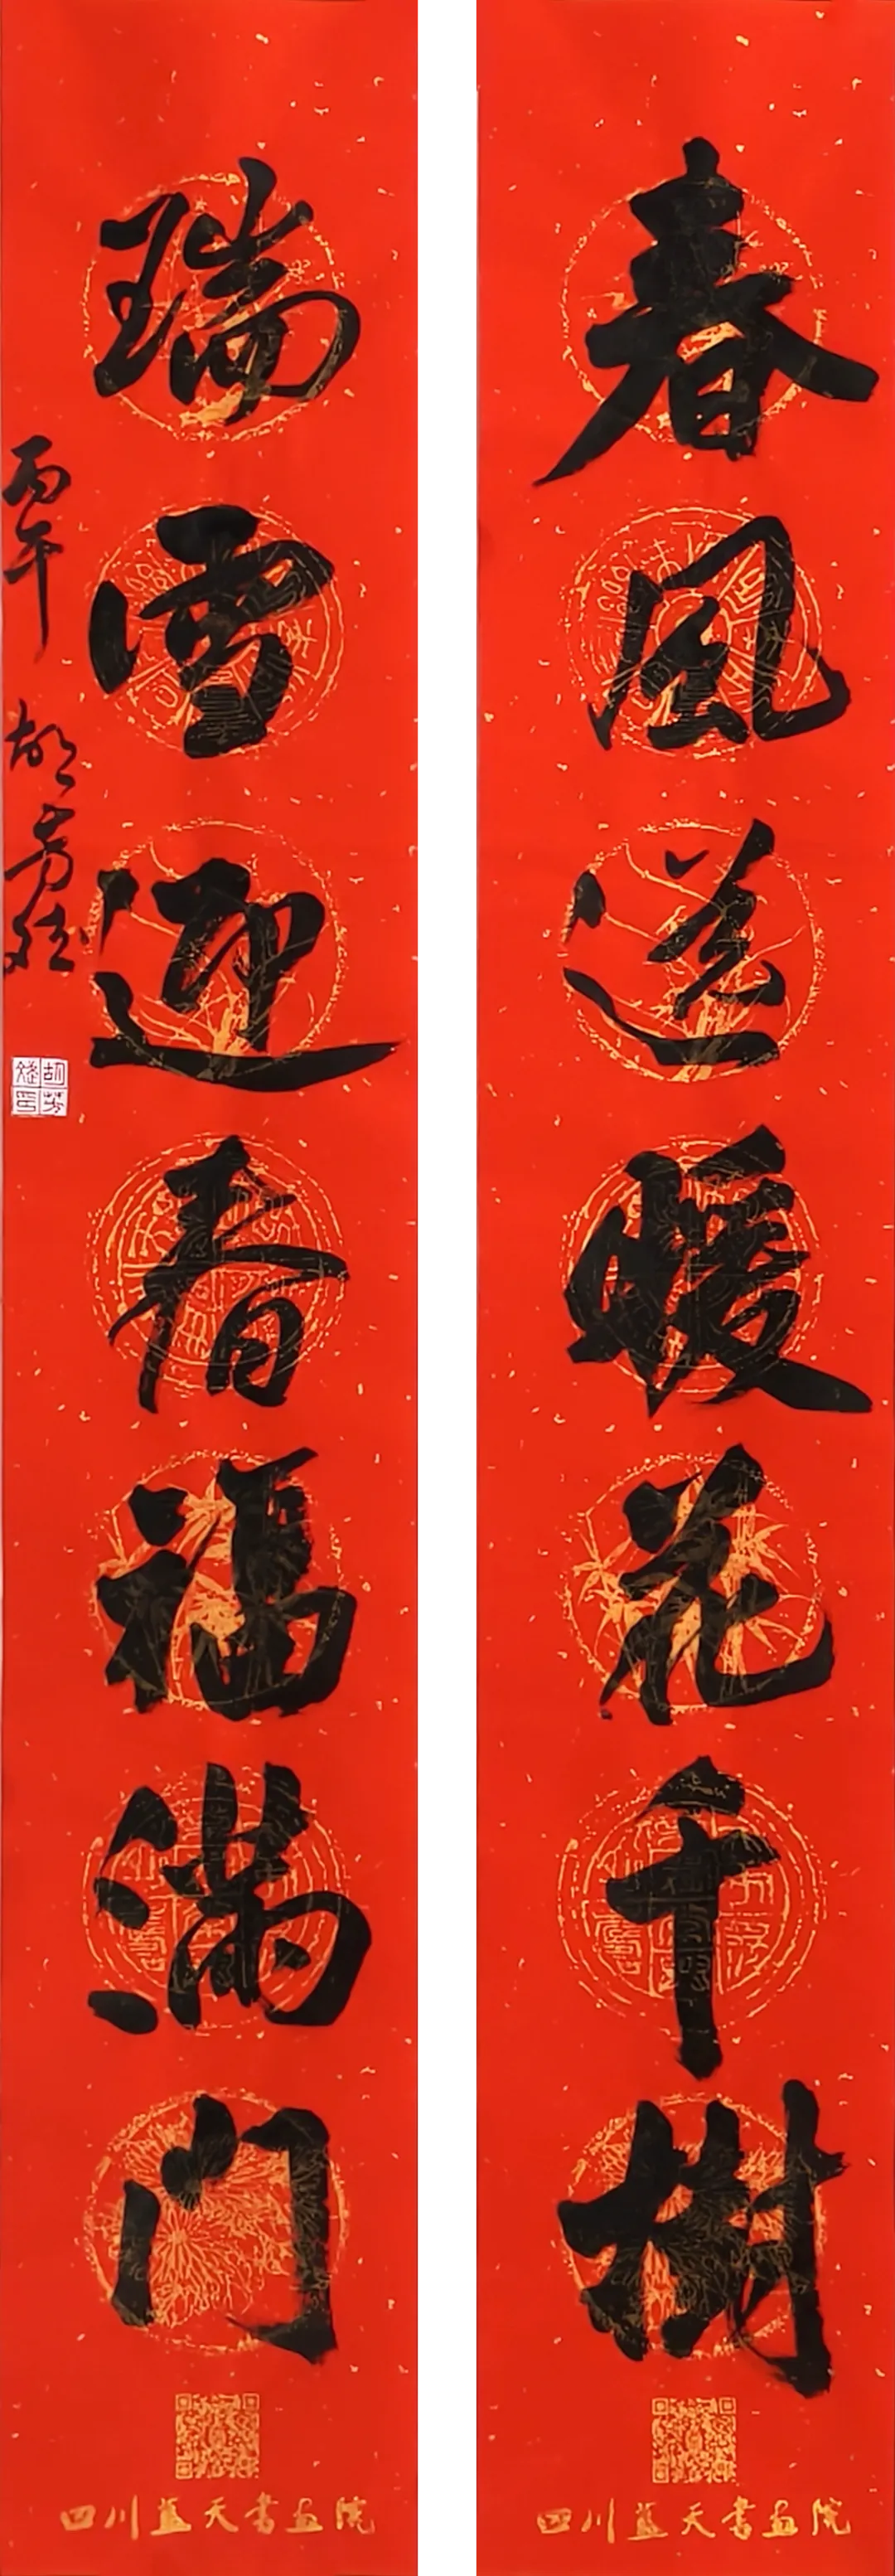 春风送暖花千树
四川蓝天书画院
瑞雪迎春福满门
丙午 胡芳
胡芳
印
四川蓝天书画院